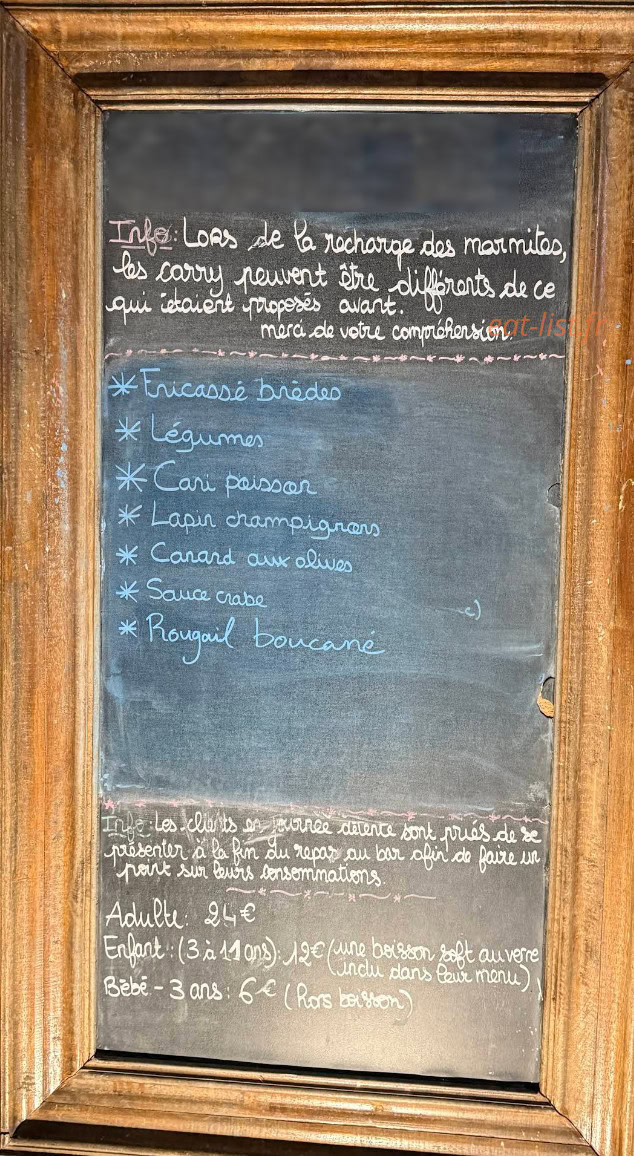 Info: Lors de la recharge des marmites,
les carry peuvent être différents de ce
qui étaient proposés avant.
merci de votre compréhension.
eat-list.fr
* Fricassé brèdes
* Légumes
* Cari poisson
* Lapin champignons
* Canard aux olives
* Sauce crabe
* Rougail boucané
Info: Les clients en journée détente sont priés de se
présenter à la fin du repas au bar afin de faire un
point sur leurs consommations.
Adulte: 24€
Enfant: (3 à 11 ans): 12€ (une boisson soft au verre
inclu dans leur menu)
Bébé - 3 ans: 6€ (hors boisson)